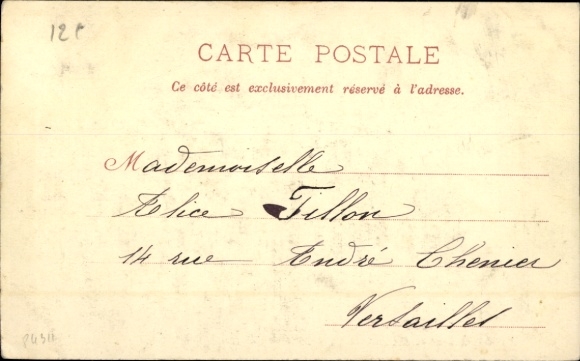 12f
CARTE POSTALE
Ce côté est exclusivement réservé à l'adresse.
Mademoiselle
Alice Tillon
14 rue André Chenier
Versailles